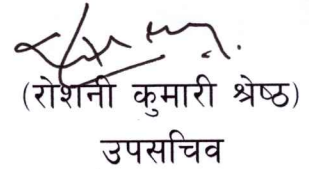 (रोशनी कुमारी श्रेष्ठ)
उपसचिव